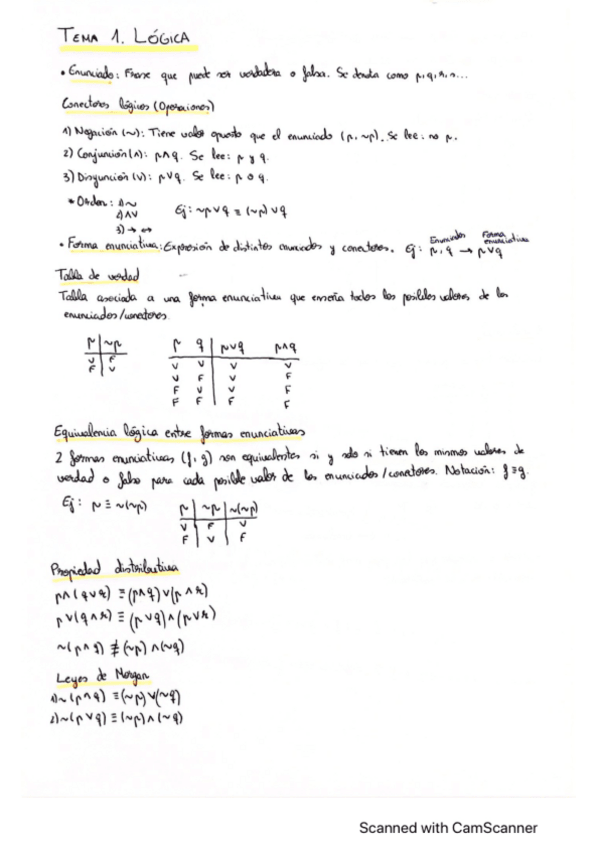 TEMA 1. LÓGICA
• Enunciado: Frase que puede ser verdadera o falsa. Se denota como p, q, r, s...
Conectores lógicos (Operaciones)
1) Negación (~): Tiene valor opuesto que el enunciado (p, ~p). Se lee: no p.
2) Conjunción (∧): p∧q. Se lee: p y q.
3) Disyunción (∨): p∨q. Se lee: p o q.
* Orden: 1) ~
2) ∧∨ Ej: ~p∨q ≡ (~p)∨q
3) → ↔
• Forma enunciativa: Expresión de distintos enunciados y conectores. Ej: Enunciados p, q → Forma enunciativa p∨q
Tabla de verdad
Tabla asociada a una forma enunciativa que enseña todos los posibles valores de los
enunciados/conectores.
p | ~p
V | F
F | V
p q | p∨q p∧q
V V | V V
V F | V F
F V | V F
F F | F F
Equivalencia lógica entre formas enunciativas
2 formas enunciativas (f, g) son equivalentes si y solo si tienen los mismos valores de
verdad o falso para cada posible valor de los enunciados/conectores. Notación: f ≡ g.
Ej: p ≡ ~(~p)
p | ~p | ~(~p)
V | F | V
F | V | F
Propiedad distributiva
p∧(q∨q) ≡ (p∧q)∨(p∧r)
p∨(q∧r) ≡ (p∨q)∧(p∨r)
~(p∧q) ≢ (~p)∧(~q)
Leyes de Morgan
1) ~(p∧q) ≡ (~p)∨(~q)
2) ~(p∨q) ≡ (~p)∧(~q)
Scanned with CamScanner